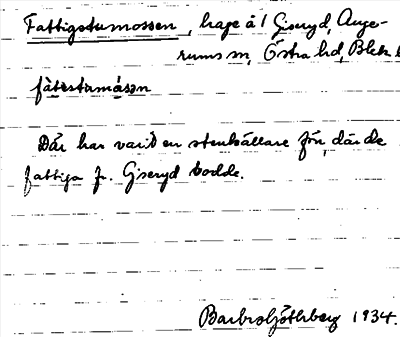 Fattigstumossen, hage å 1 Giseryd, Auge-
rums sn, Östra hd, Blek
fàtestumá̀sən
Där har varit en stenkällare för, där de
fattiga fr. Giseryd bodde.
Barbro Göthberg 1934.